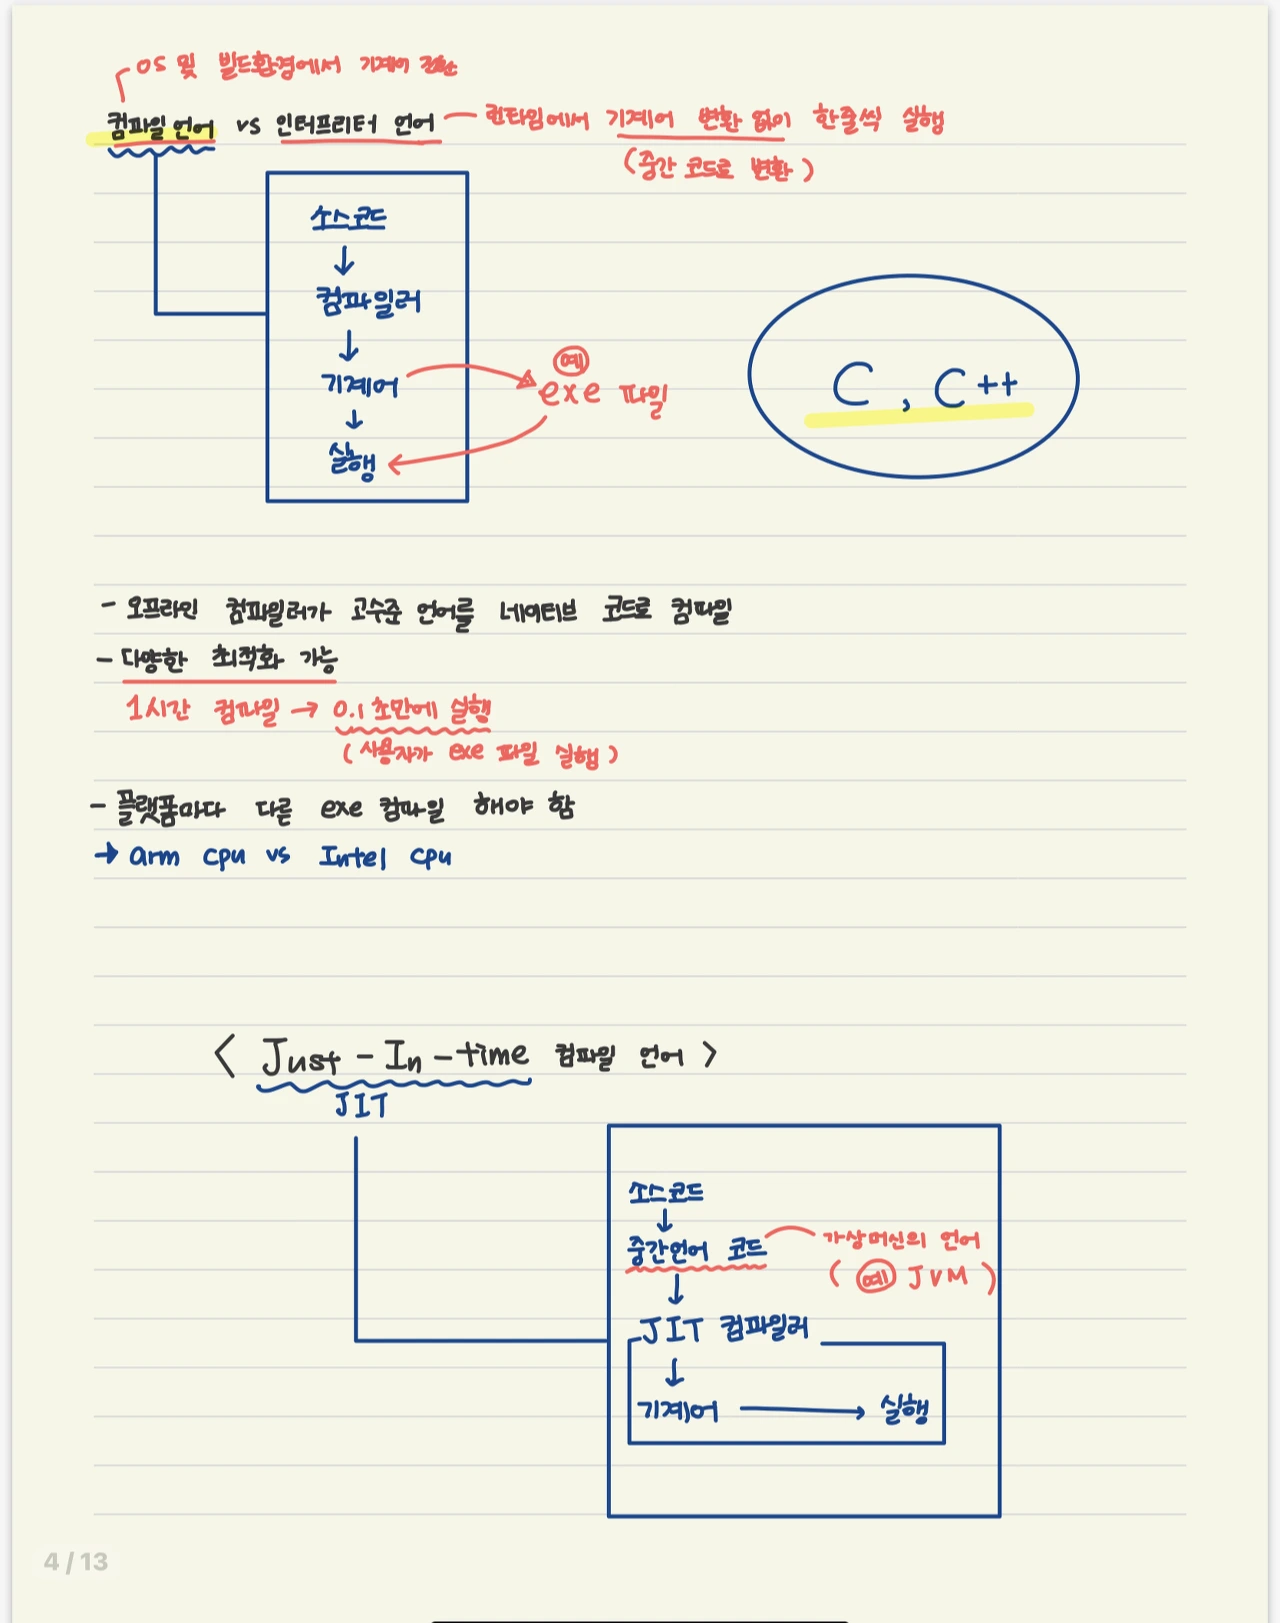 OS 및 빌드환경에서 기계어
컴파일 언어 vs 인터프리터 언어 런타임에서 기계어 변환 없이 한줄씩 실행
(중간 코드로 변환)
소스코드
컴파일러
기계어
예
exe 파일
실행
C, C++
- 오프라인 컴파일러가 고수준 언어를 네이티브 코드로 컴파일
- 다양한 최적화 가능
1시간 컴파일 → 0.1초만에 실행
(사용자가 exe 파일 실행)
- 플랫폼마다 다른 exe 컴파일 해야 함
→ arm cpu vs Intel cpu
< Just-In-time 컴파일 언어 >
JIT
소스코드
중간언어 코드 가상머신의 언어
(예 JVM)
JIT 컴파일러
기계어 → 실행
4 / 13